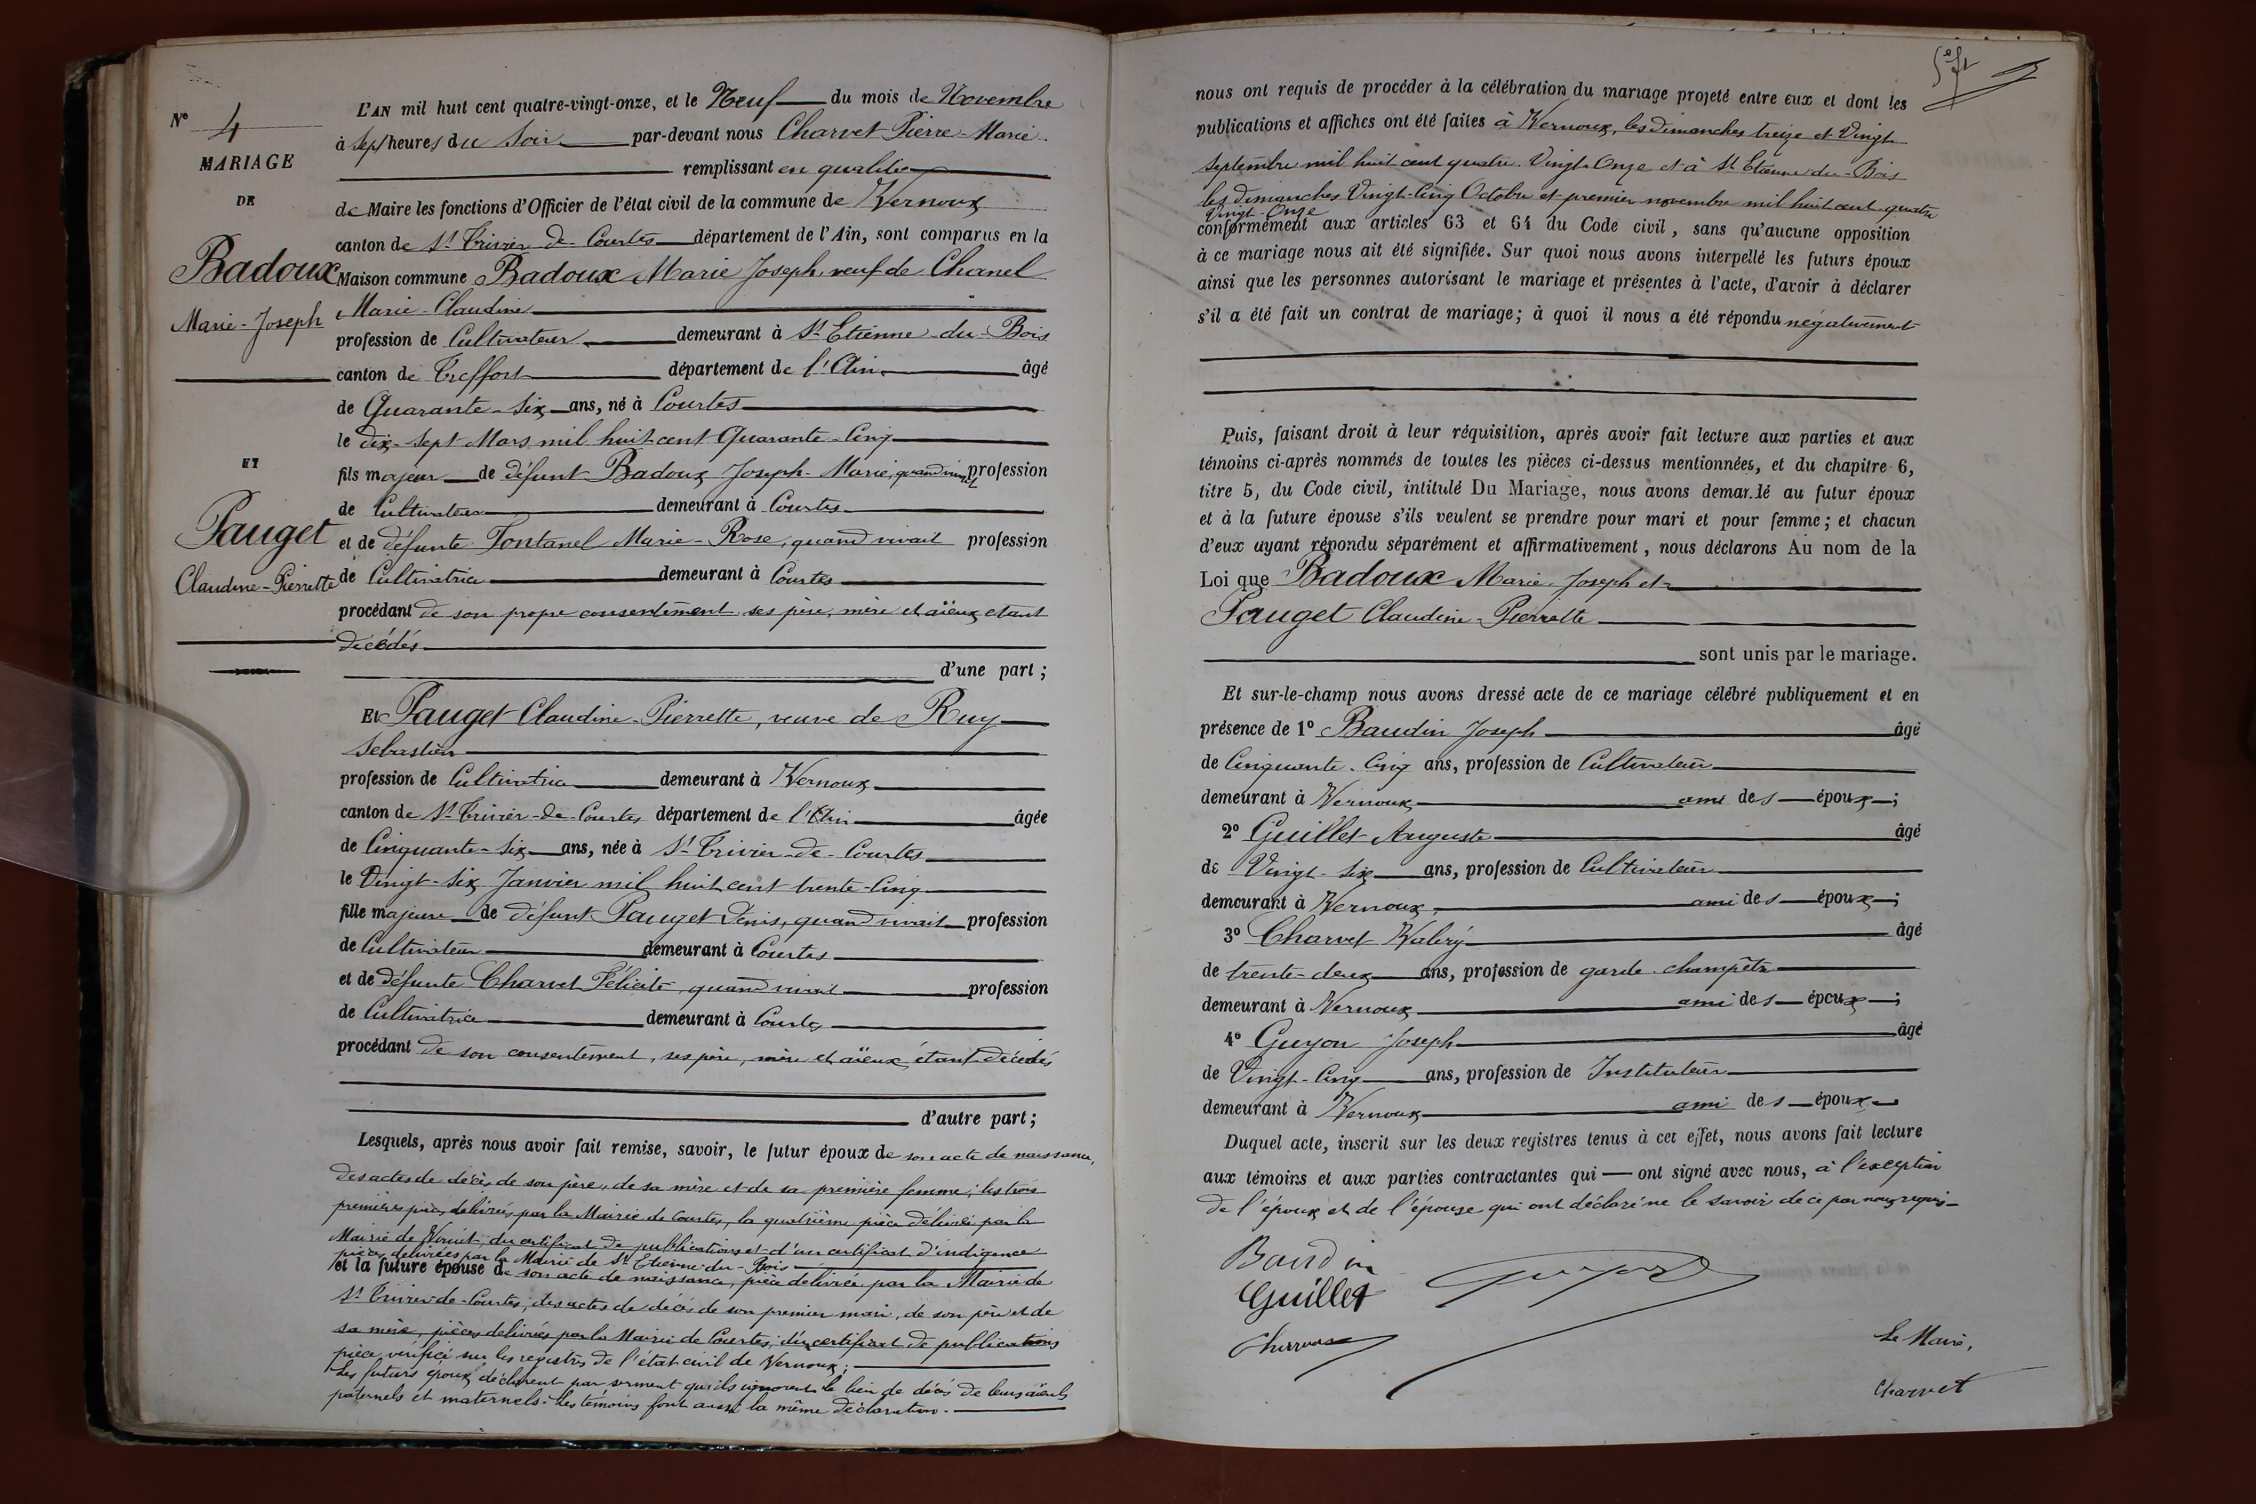 N° 4
MARIAGE
DE
Badoux
Marie-Joseph
ET
Pauget
Claudine-Pierrette
L'AN mil huit cent quatre-vingt-onze, et le Neuf du mois de Novembre
à sept heures du Soir par-devant nous Charvet Pierre-Marie
remplissant en qualité
de Maire les fonctions d'Officier de l'état civil de la commune de Vernoux
canton de St Trivier-de-Courtes département de l'Ain, sont comparus en la
Maison commune Badoux Marie Joseph, veuf de Chanel
Marie-Claudine
profession de Cultivateur demeurant à St Etienne-du-Bois
canton de Treffort département de l'Ain âgé
de Quarante-six ans, né à Courtes
le dix-sept Mars mil huit cent Quarante-Cinq
fils majeur de défunt Badoux Joseph-Marie, quand vivait profession
de Cultivateur demeurant à Courtes
et de défunte Fontanel Marie-Rose, quand vivait profession
de Cultivatrice demeurant à Courtes
procédant de son propre consentement ses père, mère et aïeux étant
décédés
d'une part ;
Et Pauget Claudine-Pierrette, veuve de Ruy
Sebastien
profession de Cultivatrice demeurant à Vernoux
canton de St Trivier-de-Courtes département de l'Ain âgée
de Cinquante-six ans, née à St Trivier-de-Courtes
le Vingt-six Janvier mil huit cent trente-Cinq
fille majeure de défunt Pauget Denis, quand vivait profession
de Cultivateur demeurant à Courtes
et de défunte Charvet Félicité quand vivait profession
de Cultivatrice demeurant à Courtes
procédant de son consentement, ses père, mère et aïeux étant décédés
d'autre part ;
Lesquels, après nous avoir fait remise, savoir, le futur époux de son acte de naissance,
des actes de décès de son père, de sa mère et de sa première femme ; les trois
premières pièces délivrées par la Mairie de Courtes, la quatrième pièce délivrée par la
Mairie de, du certificat de publications et d'un certificat d'indigence
pièces délivrées par la Mairie de St Etienne-du-Bois
et la future épouse de son acte de naissance, pièce délivrée par la Mairie de
St Trivier-de-Courtes, des actes de décès de son premier mari, de son père et de
sa mère, pièces délivrées par la Mairie de Courtes, du certificat de publications
pièce vérifiée sur les registres de l'état civil de Vernoux ;
Les futurs époux déclarent par serment qu'ils ignorent le lieu de décès de leurs aïeuls
paternels et maternels. Les témoins font aussi la même déclaration.
nous ont requis de procéder à la célébration du mariage projeté entre eux et dont les
publications et affiches ont été faites à Vernoux, les dimanches treize et Vingt
Septembre mil huit cent quatre-Vingt-Onze et à St Etienne-du-Bois
les dimanches Vingt-Cinq Octobre et premier novembre mil huit cent quatre
Vingt-Onze
conformément aux articles 63 et 64 du Code civil, sans qu'aucune opposition
à ce mariage nous ait été signifiée. Sur quoi nous avons interpellé les futurs époux
ainsi que les personnes autorisant le mariage et présentes à l'acte, d'avoir à déclarer
s'il a été fait un contrat de mariage ; à quoi il nous a été répondu négativement
Puis, faisant droit à leur réquisition, après avoir fait lecture aux parties et aux
témoins ci-après nommés de toutes les pièces ci-dessus mentionnées, et du chapitre 6,
titre 5, du Code civil, intitulé Du Mariage, nous avons demandé au futur époux
et à la future épouse s'ils veulent se prendre pour mari et pour femme ; et chacun
d'eux ayant répondu séparément et affirmativement, nous déclarons Au nom de la
Loi que Badoux Marie-Joseph et
Pauget Claudine-Pierrette
sont unis par le mariage.
Et sur-le-champ nous avons dressé acte de ce mariage célébré publiquement et en
présence de 1° Baudin Joseph âgé
de Cinquante-Cinq ans, profession de Cultivateur
demeurant à Vernoux ami des époux ;
2° Guillet Auguste âgé
de Vingt-six ans, profession de Cultivateur
demeurant à Vernoux ami des époux ;
3° Charvet Valéry âgé
de trente-deux ans, profession de garde-champêtre
demeurant à Vernoux ami des époux ;
4° Guyon Joseph âgé
de Vingt-Cinq ans, profession de Instituteur
demeurant à Vernoux ami des époux
Duquel acte, inscrit sur les deux registres tenus à cet effet, nous avons fait lecture
aux témoins et aux parties contractantes qui ont signé avec nous, à l'exception
de l'époux et de l'épouse qui ont déclaré ne le savoir de ce par nous requis
Baudin
Guyon
Guillet
Le Maire,
Charvet